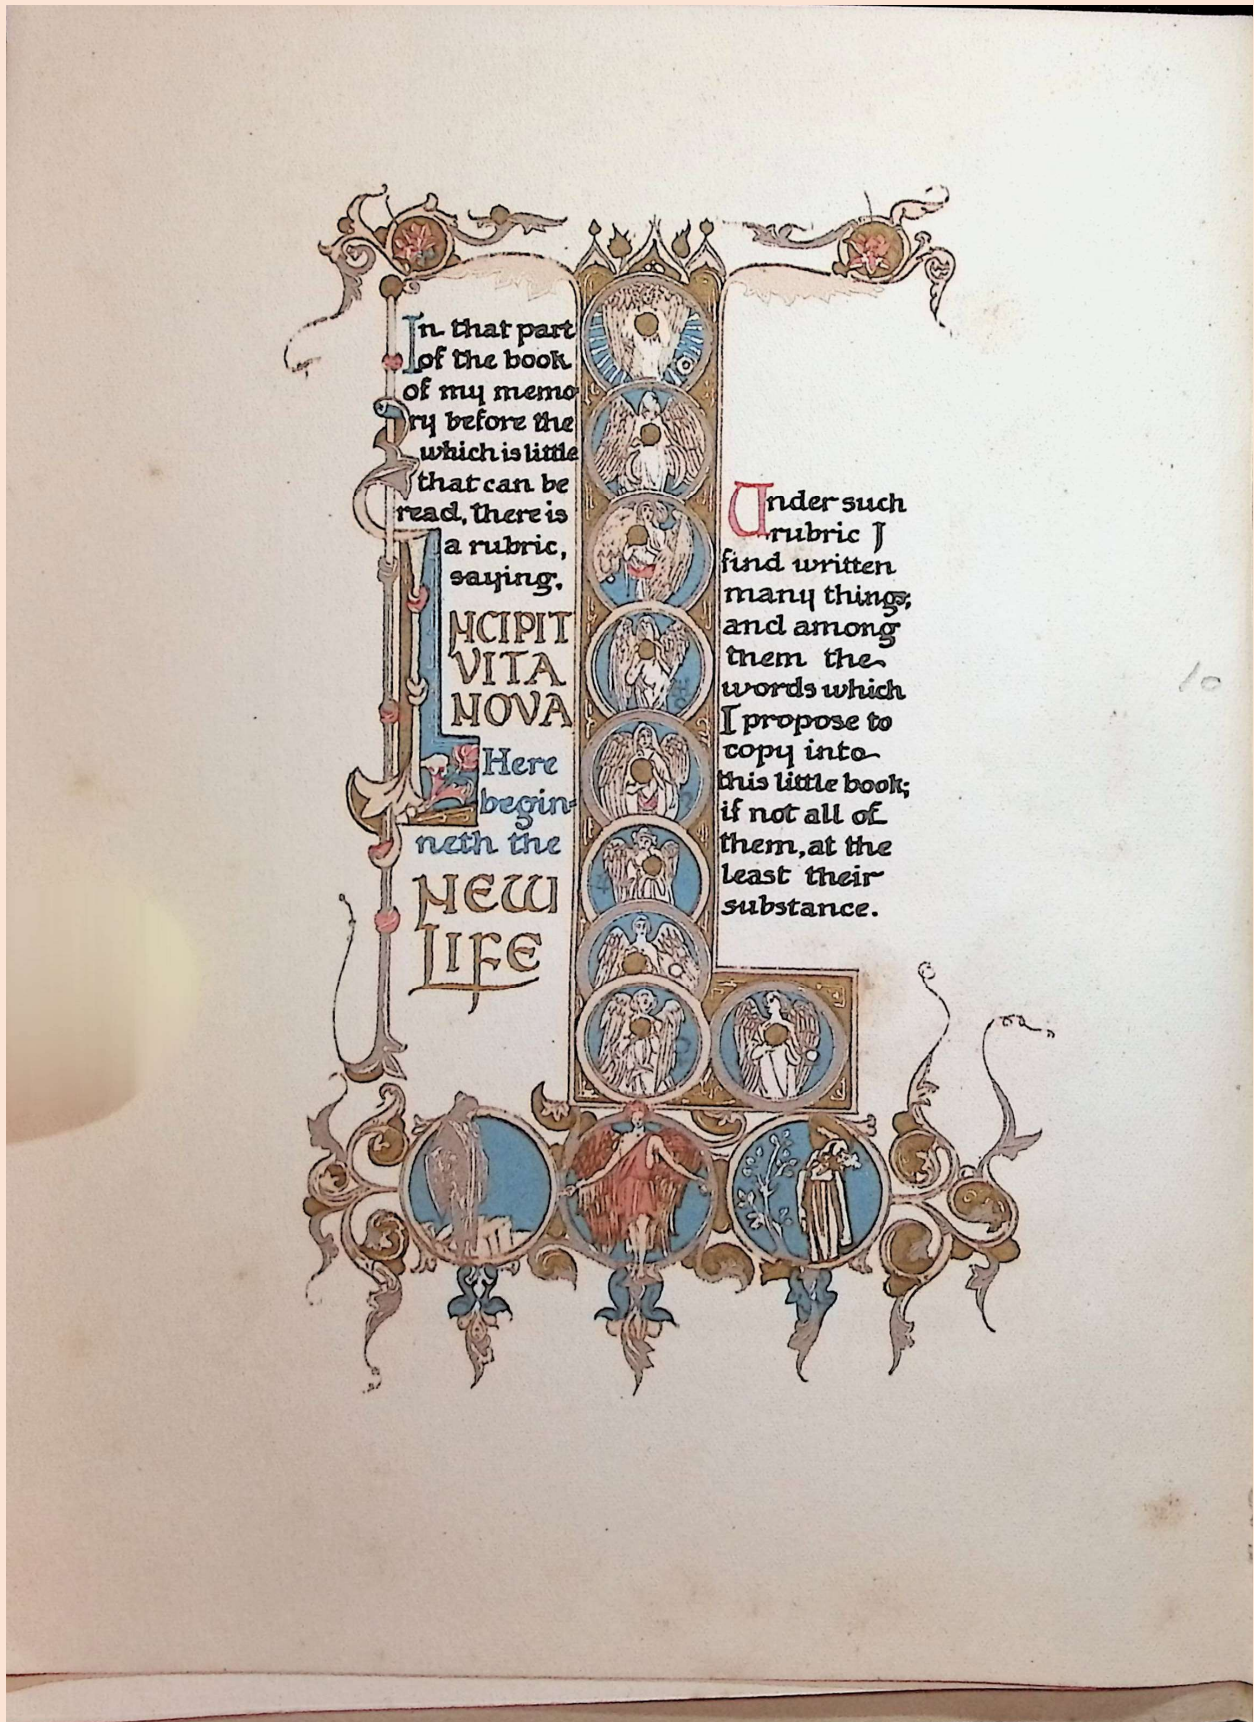 In that part
of the book
of my memo
ry before the
which is little
that can be
read, there is
a rubric,
saying,
INCIPIT
VITA
NOVA
Here
begin-
neth the
NEW
LIFE
Under such
rubric I
find written
many things;
and among
them the
words which
I propose to
copy into
this little book;
if not all of
them, at the
least their
substance.
10